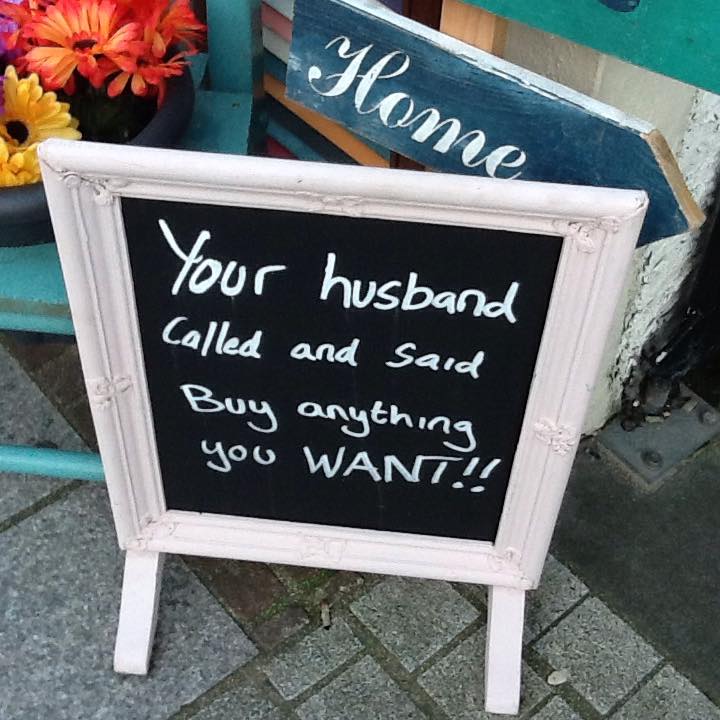 Home
Your husband
Called and said
Buy anything
you WANT!!